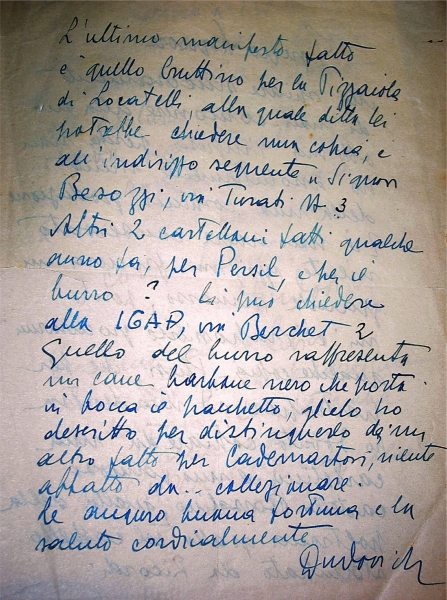 L'ultimo manifesto fatto
è quello bruttino per la Pizzaiola
di Locatelli, alla quale ditta lei
potrebbe chiedere una copia, e
all'indirizzo seguente a Signor
Besozzi, via Turati N. 3
Altri 2 cartelloni fatti qualche
anno fa, per Persil, e per il
burro ? li può chiedere
alla IGAP, via Berchet 2
Quello del burro rappresenta
un cane barbone nero che porta
in bocca il pacchetto, glielo ho
descritto per distinguerlo da un
altro fatto per Cademartori, niente
affatto da.. collezionare.
Le auguro buona fortuna e la
saluto cordialmente
Dudovich